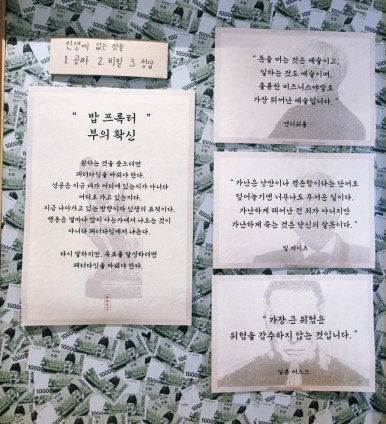 인생에 없는 것들
1. 공짜 2. 비밀 3. 정답
" 밥 프록터 "
부의 확신
원하는 것을 좇으려면
패러다임을 바꿔야 한다.
성공은 지금 내가 어디에 있는지가 아니다
어디로 가고 있는지다.
지금 나아가고 있는 방향이자 인생의 표적이다.
행동은 얼마나 많이 아는가에서 나오는 것이
아니다 패러다임에서 나온다.
다시 말하지만, 목표를 달성하려면
패러다임을 바꿔야 한다.
" 돈을 버는 것은 예술이고,
일하는 것도 예술이며,
훌륭한 비즈니스야말로
가장 뛰어난 예술입니다. "
앤디워홀
" 가난은 낭만이나 겸손함이라는 단어로
덮어놓기엔 너무나도 무서운 일이다.
가난하게 태어난 것 죄가 아니지만
가난하게 죽는 것은 당신의 잘못이다. "
빌 게이츠
" 가장 큰 위험은
위험을 감수하지 않는 것입니다. "
일론 머스크
10000